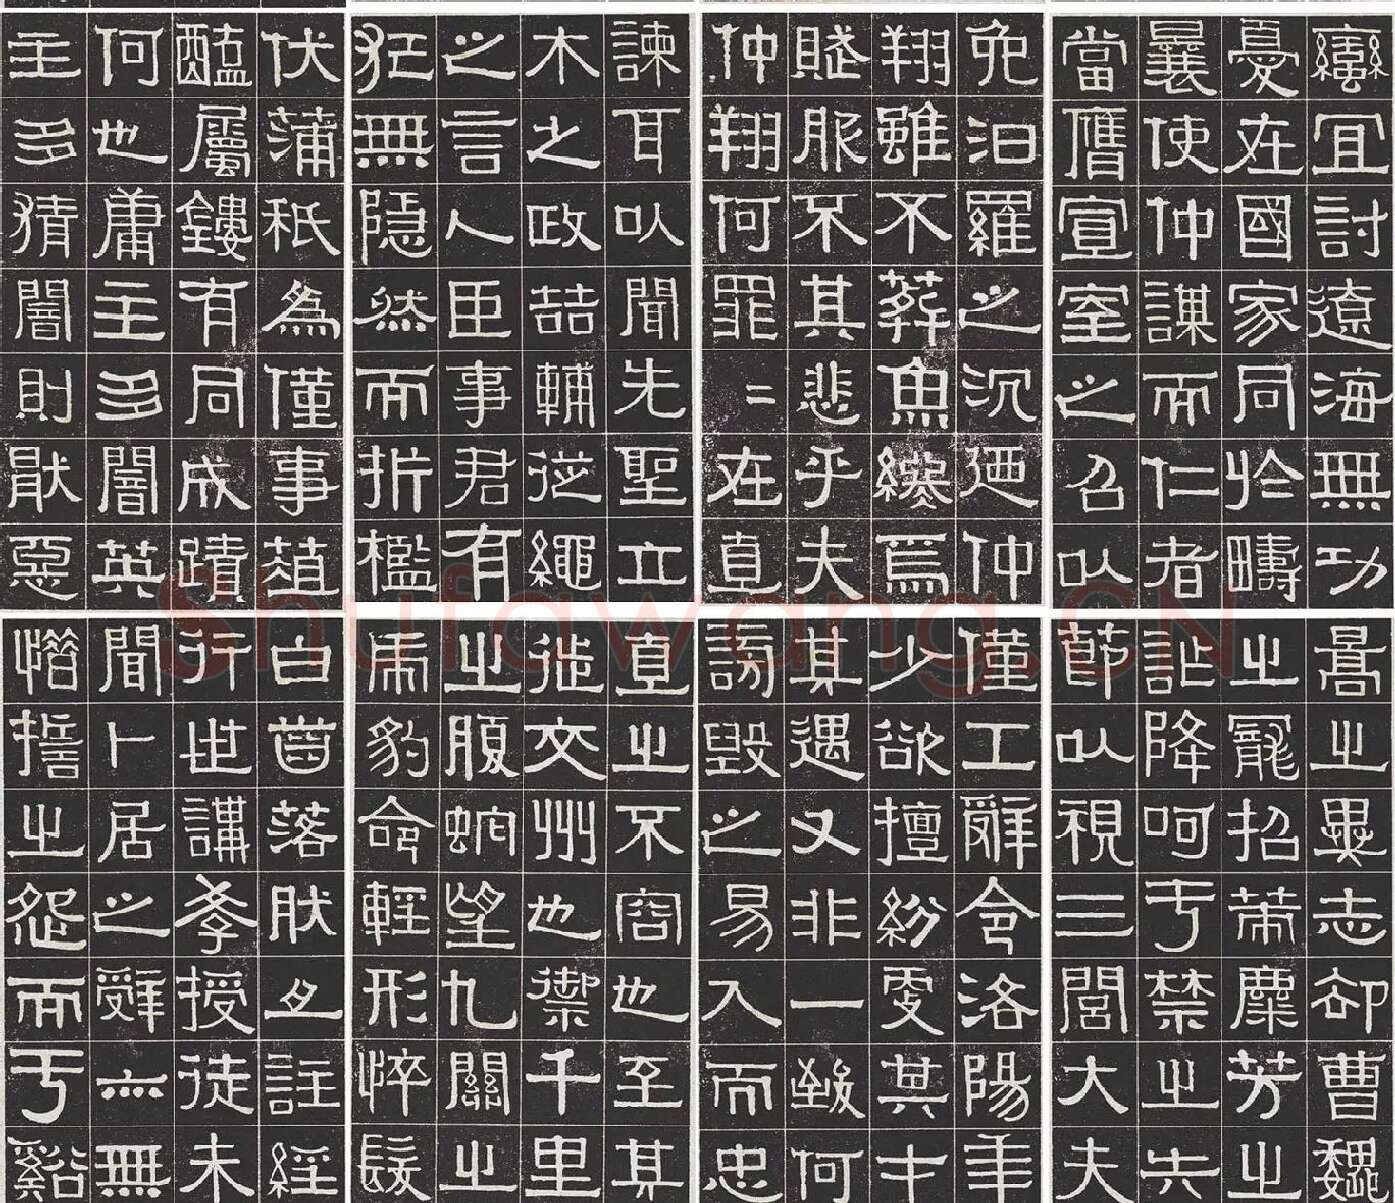 蠻宜討遼海無功
憂在國家同於疇
曩使仲謀而仁者
當膺宣室之召以
免汨羅之沉迺仲
翔雖不葬魚焉
賦服不其悲乎夫
仲翔何罪=在直
諫耳以聞先聖立
木之政喆輔從繩
之言人臣事君有
狂無隱然而折檻
伏蒲秖為僅事菹
醢屬鏤有同成蹟
何也庸主多闇英
主多猜闇則猒惡
暠之異志卻曹魏
之寵招麋芳之
降呵于禁之失
節以視三閭大夫
僅工辭令洛陽年
少欲擅紛更其才
其遇又非一致何
謗毀之易入而忠
直之不容也至其
徙交州也禦千里
之腹蛇望九關之
虎豹命輕形悴髮
白齒落註經
行世講學授徒未
聞卜居之辭亦無
之怨而于谿
Shufawang.CN